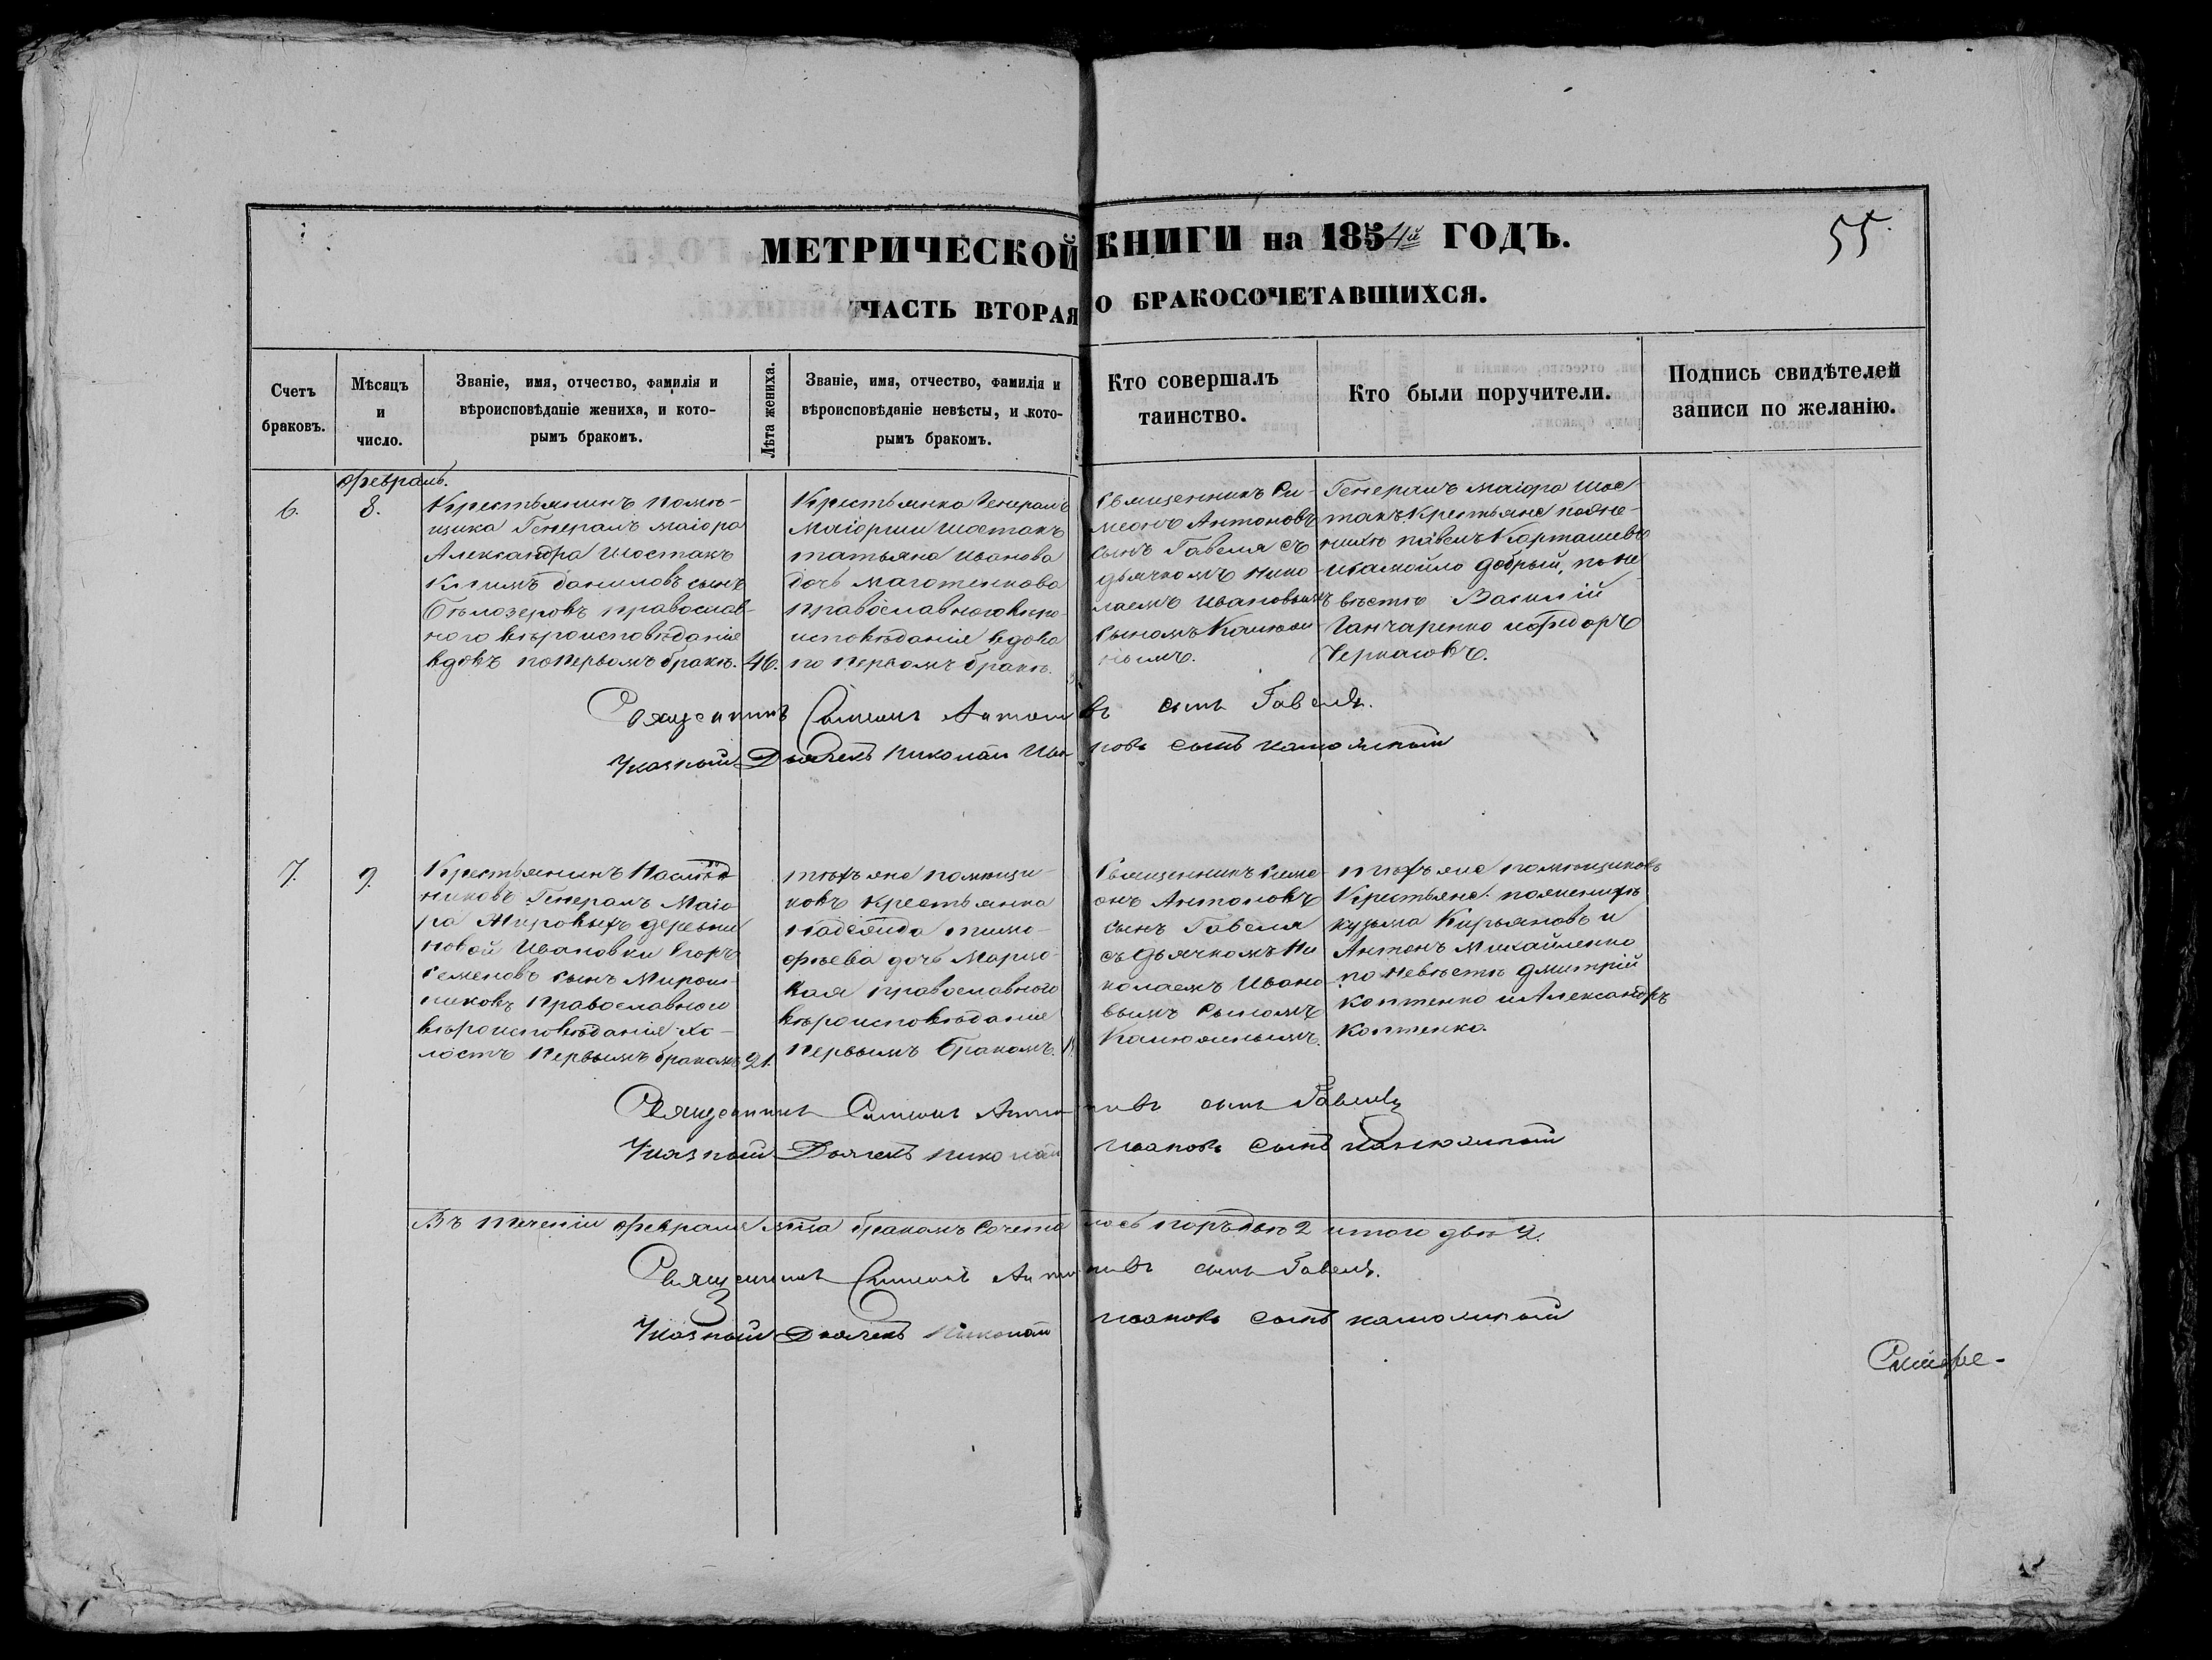 МЕТРИЧЕСКОЙ КНИГИ на 1854й ГОДЪ.
55
ЧАСТЬ ВТОРАЯ О БРАКОСОЧЕТАВШИХСЯ.
Счетъ
браковъ.
Мѣсяцъ
и
число.
Званіе, имя, отчество, фамилія и
вѣроисповѣданіе жениха, и кото-
рымъ бракомъ.
Лѣта жениха.
Званіе, имя, отчество, фамилія и
вѣроисповѣданіе невѣсты, и кото-
рымъ бракомъ.
Кто совершалъ
таинство.
Кто были поручители.
Подпись свидѣтелей
записи по желанію.
Февраль.
6.
8.
Крестьянинъ помѣ-
щика Генералъ маіора
Александра Шостакъ
Климъ Даниловъ сынъ
Бѣлозеровъ православ-
ного вѣроисповѣданія
вдовъ по первомъ бракѣ.
46.
Крестьянка Генералъ
Маіорши Шостакъ
татьяна Иванова
дочь
православного вѣро-
исповѣданія вдова
по первомъ бракѣ.
Священникъ Си-
меонъ Антоновъ
сынъ Гавеля съ
дьячкомъ Нико-
лаемъ Ивановымъ
сыномъ Калюж
нымъ.
Генералъ маіора Шос
такъ Крестьяне по же-
нихѣ павелъ Карташевъ
и Самойло добрый, по не
вѣстѣ Василій
Ганчаренко и Федоръ
Черкасовъ.
Священникъ Симеонъ Антоновъ сынъ Гавель.
Указный Дьячекъ Николай Ивановъ сынъ
7.
9.
Крестьянинъ Наслѣд
никовъ Генералъ Маіо
ра деревни
Новой Ивановки Егоръ
Семеновъ сынъ Мирош-
никовъ Православного
вѣроисповѣданія хо-
лостъ Первымъ бракомъ
21.
тѣхъ же помѣщи-
ковъ Крестьянка
Надежда тимо-
фѣева дочь
православного
вѣроисповѣданія
первымъ бракомъ.
Священникъ Симе-
онъ Антоновъ
сынъ Гавеля
съ дьячкомъ Ни
колаемъ Ивано
вымъ сыномъ
тѣхъ же помѣщиковъ
Крестьяне: по женихѣ
кузьма Кирьяновъ и
Антонъ Михайленко
по невѣстѣ Дмитрій
Коптенко и Александръ
Коптенко.
Священникъ Симеонъ Антоновъ сынъ Гавель
Указный Дьячекъ Николай Ивановъ сынъ
Въ теченіи февраля мѣсяца бракомъ сочеталось 2 итого двѣ 2.
Священникъ Симеонъ Антоновъ сынъ Гавель.
Указный Дьячекъ Николай Ивановъ сынъ